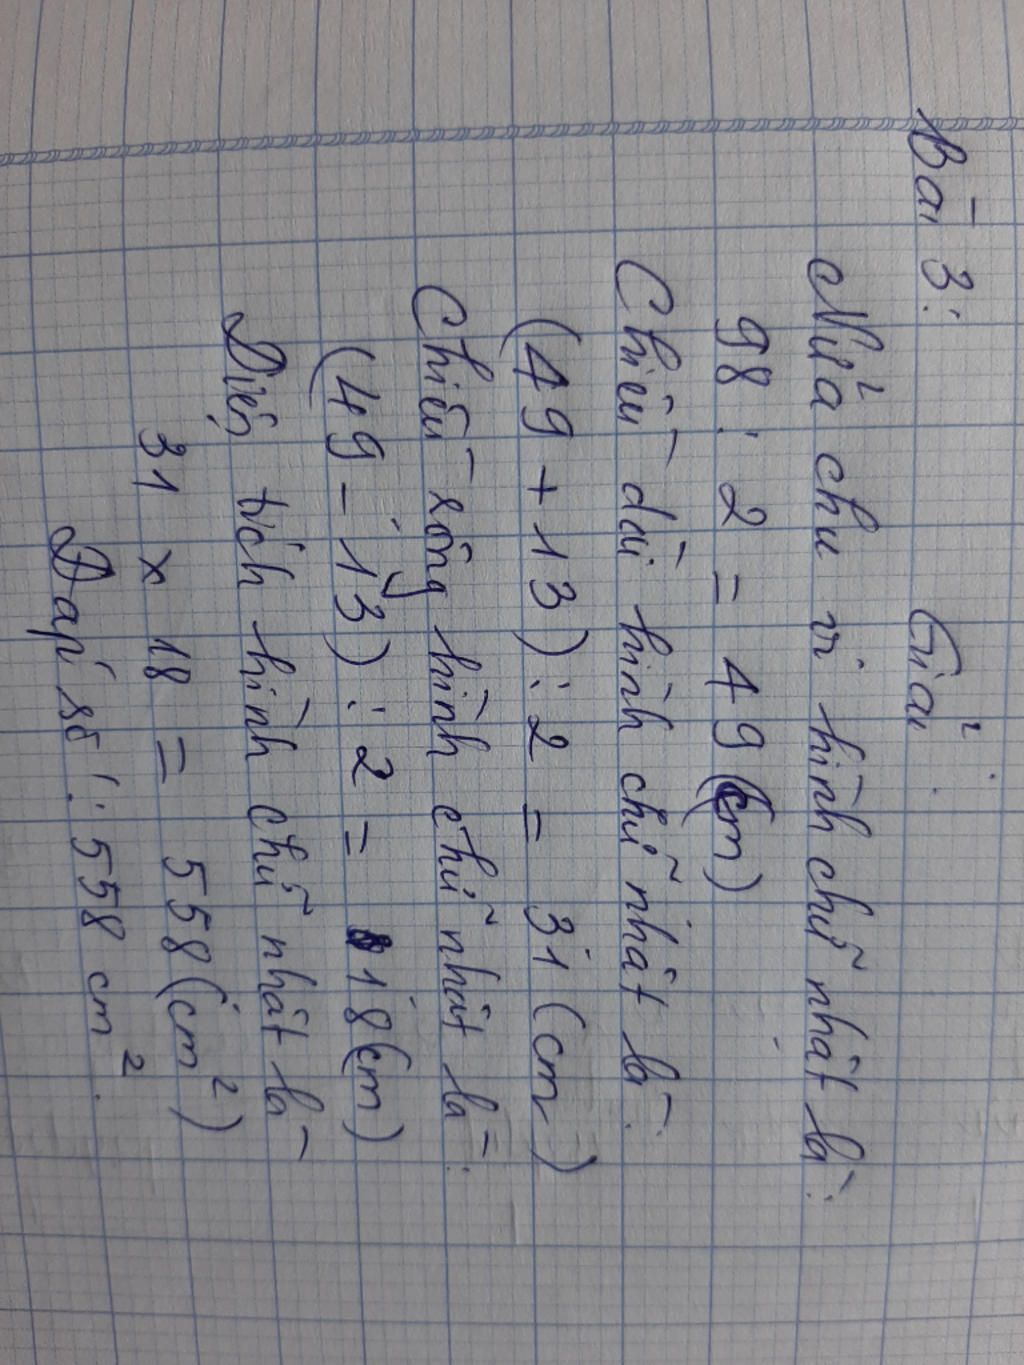 Bài 3:
Giải
Nửa chu vi hình chữ nhật là:
98 : 2 = 49 (cm)
Chiều dài hình chữ nhật là:
(49 + 13) : 2 = 31 (cm)
Chiều rộng hình chữ nhật là:
(49 - 13) : 2 = 18 (cm)
Diện tích hình chữ nhật là
31 x 18 = 558 (cm²)
Đáp số : 558 cm².